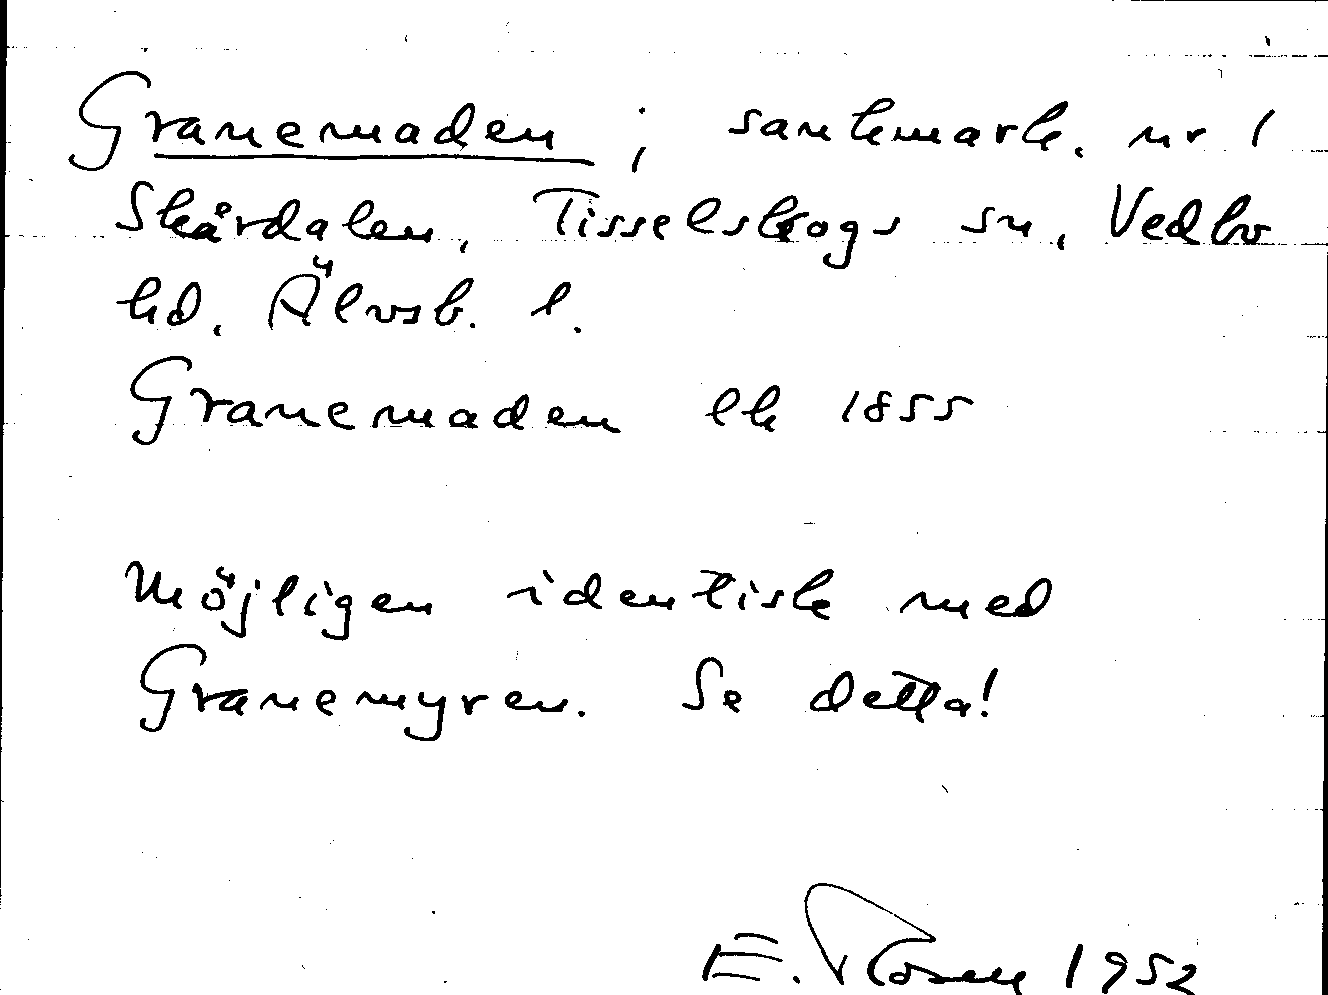 Granemaden ; sankmark. nr 1
Skårdalen, Tisselskogs sn, Vedbo
hd. Älvsb. l.
Granemaden ek 1855
Möjligen identisk med
Granemyren. Se detta!
E. Rosén 1952